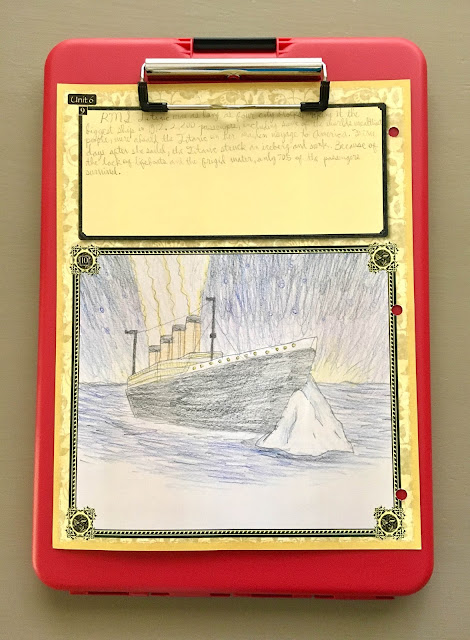 Unit 6
9
R.M.S. Titanic was as long as four city blocks, making it the
biggest ship 2,200 passengers, including some of the world's wealthiest
people, were aboard the Titanic on her maiden voyage to America. Days
days after she sailed, the Titanic struck an iceberg and sank. Because of
the lack of lifeboats and the frigid water, only 705 of the passengers
survived.
10